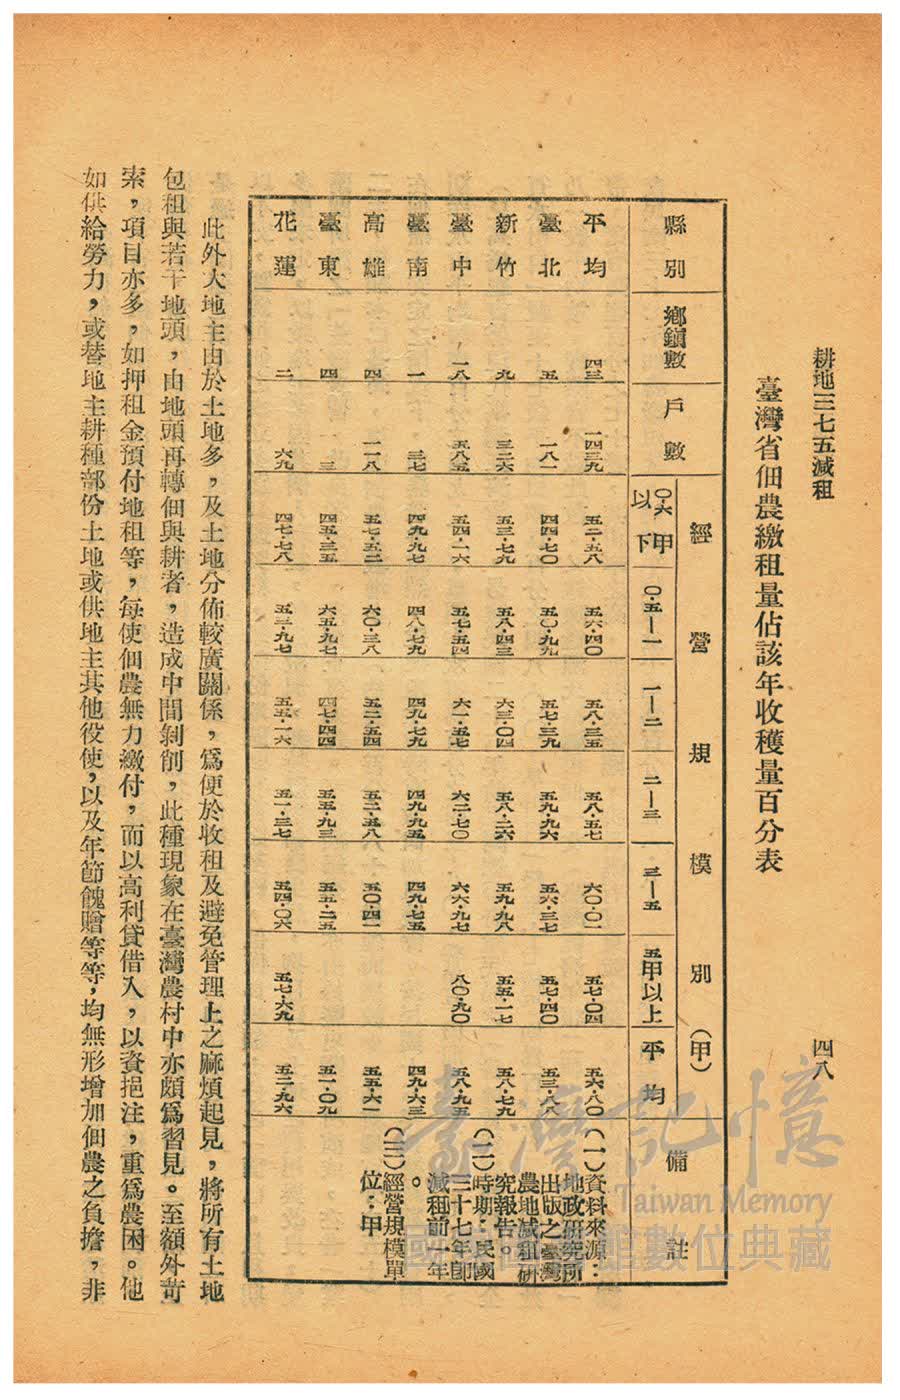 耕地三七五減租
四八
臺灣省佃農繳租量佔該年收穫量百分表
縣別 鄉鎭數 戶數 經營規模別（甲） 備註
〇・六甲以下 〇・五—一 一—二 二—三 三—五 五甲以上 平均
平均 四三 一四三九 五二・五八 五六・四〇 五八・三五 五八・五七 六〇・〇一 五七・〇四 五六・八〇
臺北 五 一八一 四四・七〇 五〇・九九 五七・三九 五九・九六 五六・三七 五七・四〇 五三・八八
新竹 九 三二六 五三・七九 五八・四三 六三・〇四 五八・二六 五九・九八 五五・一七 五八・七九
臺中 一八 五八五 五四・一六 五七・五四 六一・五七 六二・七〇 六六・九七 八〇・九〇 五八・九五
臺南 一 三七 四九・九七 四八・七九 四九・七九 四九・九五 四九・七五 四九・六三
高雄 四 一一八 五七・五二 六〇・三八 五二・五四 五二・五八 五〇・四一 五五・六一
臺東 四 三 四五・三五 六五・九七 四七・四四 五五・九三 五五・二五 五一・〇九
花蓮 二 六九 四七・七八 五三・九七 五五・一六 五一・三七 五四・〇六 五七・六九 五二・九六
（一）資料來源：
地政研究所
出版之臺灣
農地減租研
究報告。
（二）時期：民國
三十七年卽
減租前一年
。
（三）經營規模單
位：甲
此外大地主由於土地多，及土地分佈較廣關係，爲便於收租及避免管理上之麻煩起見，將所有土地
包租與若干地頭，由地頭再轉佃與耕者，造成中間剝削，此種現象在臺灣農村中亦頗爲習見。至額外苛
索，項目亦多，如押租金預付地租等，每使佃農無力繳付，而以高利貸借入，以資挹注，重爲農困。他
如供給勞力，或替地主耕種部份土地或供地主其他役使，以及年節餽贈等等，均無形增加佃農之負擔，非
臺灣記憶
Taiwan Memory
國家圖書館數位典藏